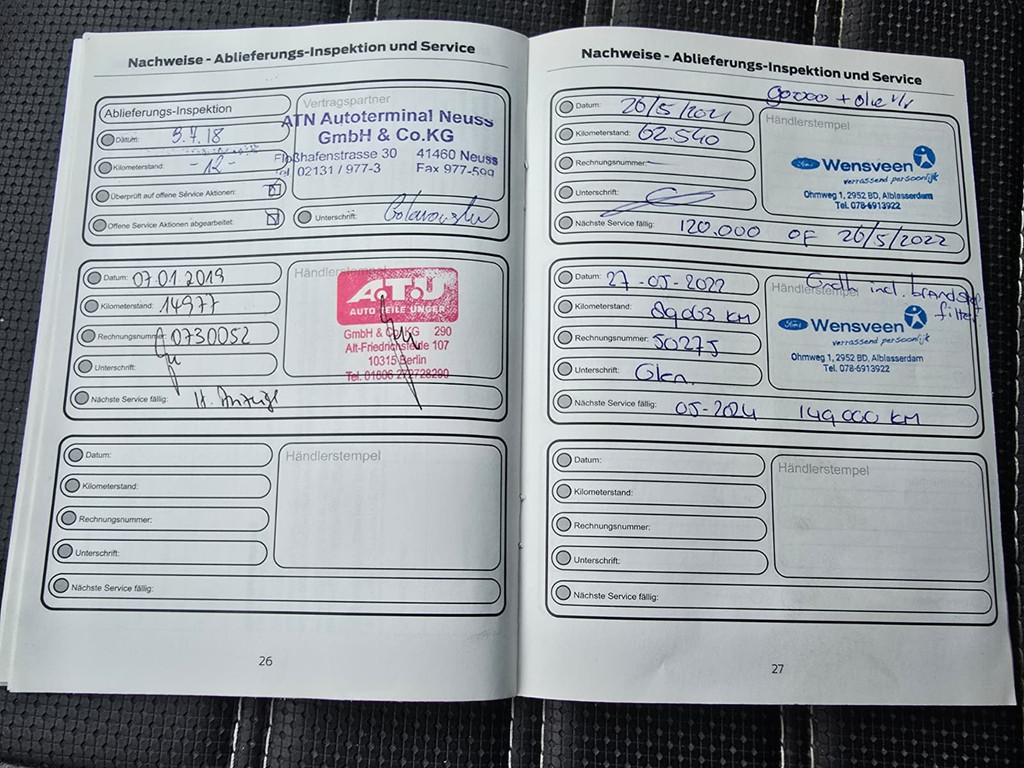 Nachweise - Ablieferungs-Inspektion und Service
Ablieferungs-Inspektion
Datum: 5.7.18
Kilometerstand: -12-
Überprüft auf offene Service Aktionen:
Offene Service Aktionen abgearbeitet:
Vertragspartner
ATN Autoterminal Neuss
GmbH & Co.KG
Floßhafenstrasse 30 41460 Neuss
Tel 02131 / 977-3 Fax 977-599
Unterschrift:
Datum: 07.01.2019
Kilometerstand: 14977
Rechnungsnummer: 0730052
Unterschrift:
Nächste Service fällig: lt. Anzeige
Händlerstempel
A.T.U
AUTO TEILE UNGER
GmbH & Co. KG 290
107
10315 Berlin
Datum:
Kilometerstand:
Rechnungsnummer:
Unterschrift:
Nächste Service fällig:
Händlerstempel
26
Nachweise - Ablieferungs-Inspektion und Service
90000 + olie
Datum: 26/5/2021
Kilometerstand: 62.540
Rechnungsnummer:
Unterschrift:
Nächste Service fällig: 120.000 OF 26/5/2022
Händlerstempel
Ford Wensveen
verrassend persoonlijk
Ohmweg 1, 2952 BD, Alblasserdam
Tel. 078-6913922
Datum: 27-05-2022
Kilometerstand: 89063 KM
Rechnungsnummer: 50275
Unterschrift: Glen.
Nächste Service fällig: 05-2024 149.000 KM
Händlerstempel
incl. brandstof
filter
Ford Wensveen
verrassend persoonlijk
Ohmweg 1, 2952 BD, Alblasserdam
Tel. 078-6913922
Datum:
Kilometerstand:
Rechnungsnummer:
Unterschrift:
Nächste Service fällig:
Händlerstempel
27